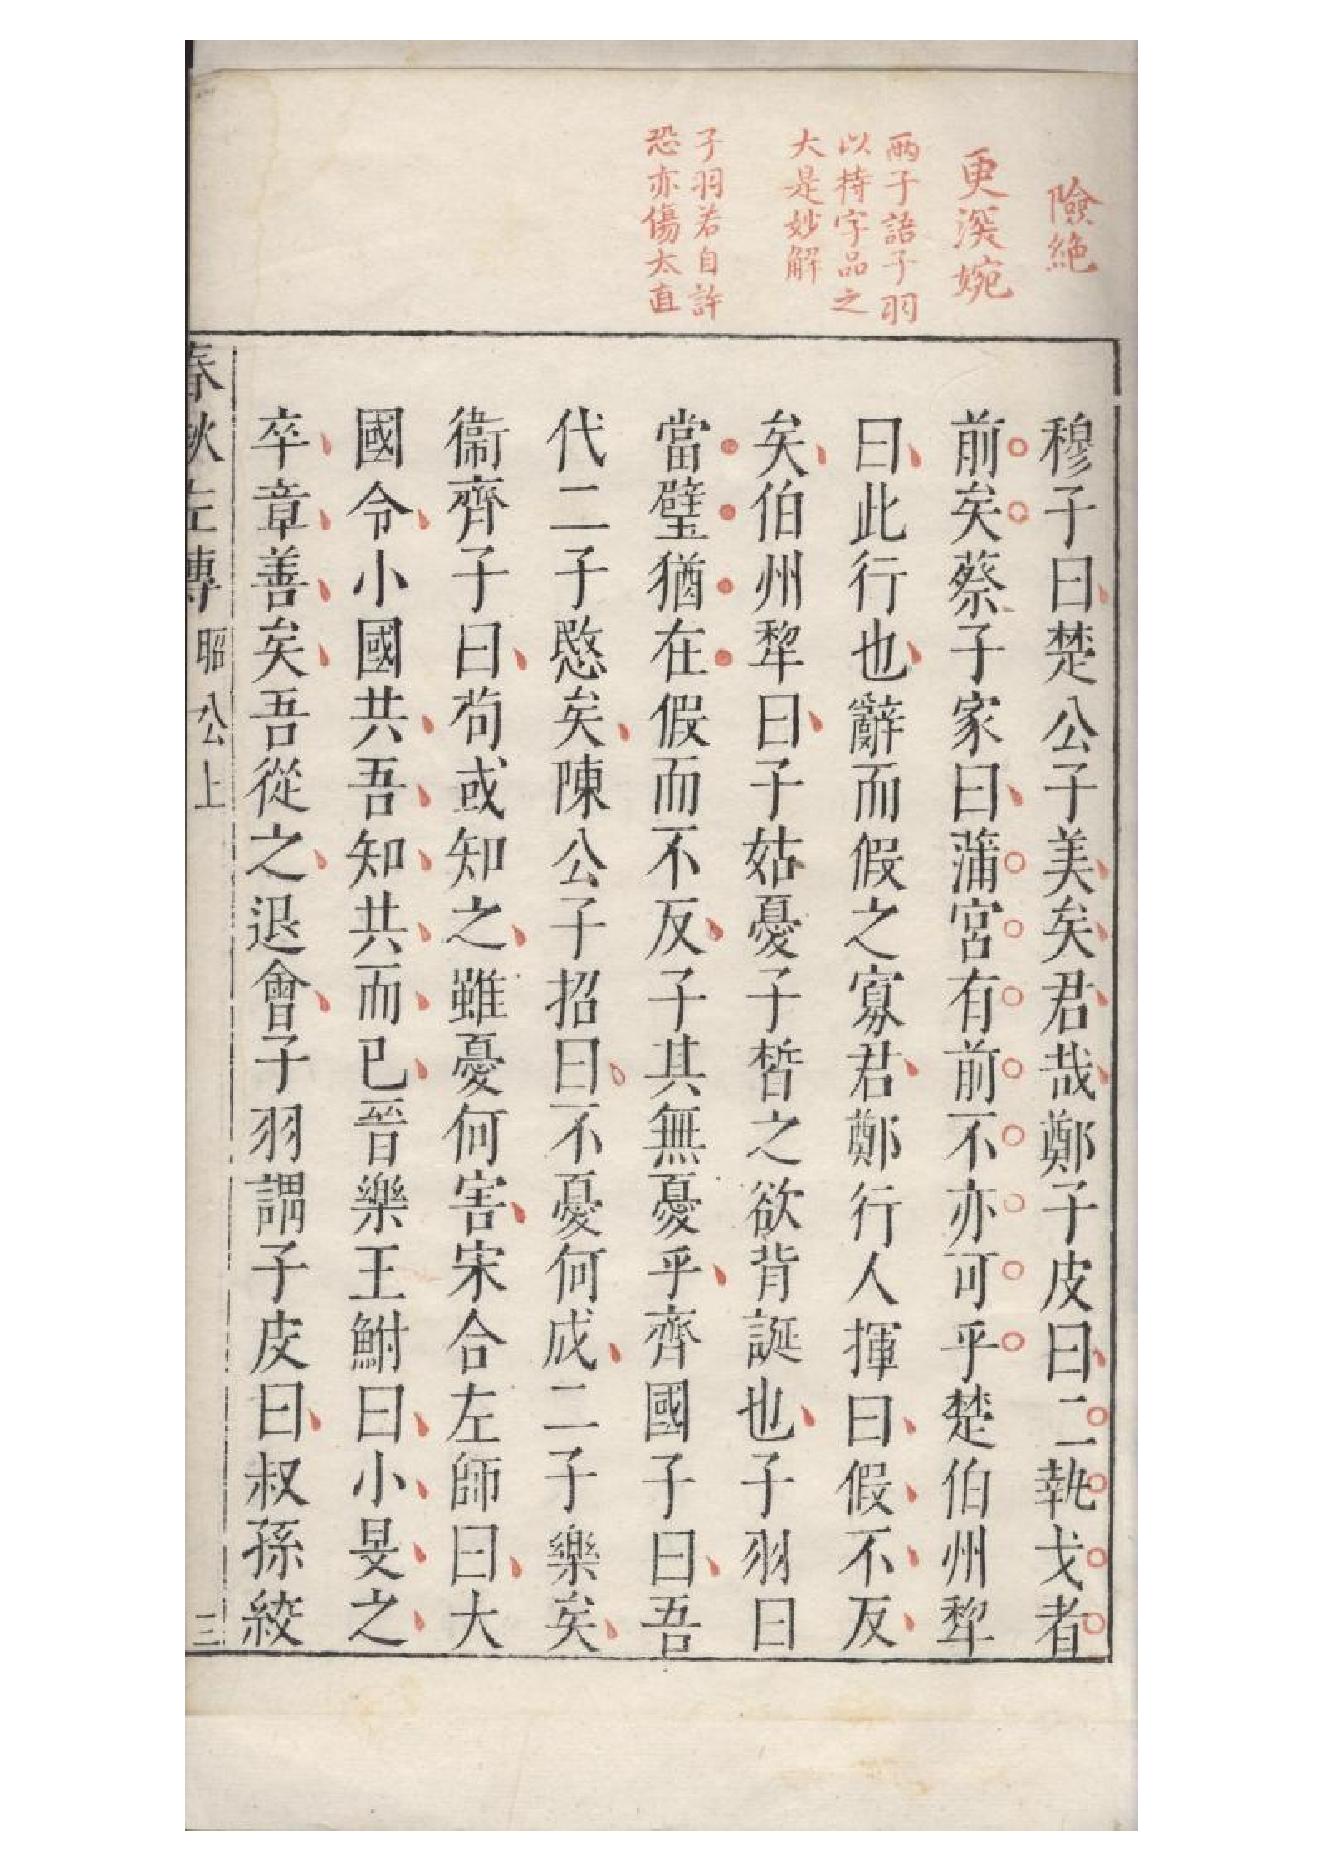 險絶
更深婉
兩子語子羽
以持字品之
大是妙解
子羽若自許
恐亦傷太直
穆子曰楚公子美矣君哉鄭子皮曰二執戈者
前矣蔡子家曰蒲宮有前不亦可乎楚伯州犂
曰此行也辭而假之寡君鄭行人揮曰假不反
矣伯州犂曰子姑憂子晳之欲背誕也子羽曰
當璧猶在假而不反子其無憂乎齊國子曰吾
代二子愍矣陳公子招曰不憂何成二子樂矣
衞齊子曰茍或知之雖憂何害宋合左師曰大
國令小國共吾知共而已晉樂王鮒曰小旻之
卒章善矣吾從之退會子羽謂子皮曰叔孫絞
春秋左傳 昭公上 三